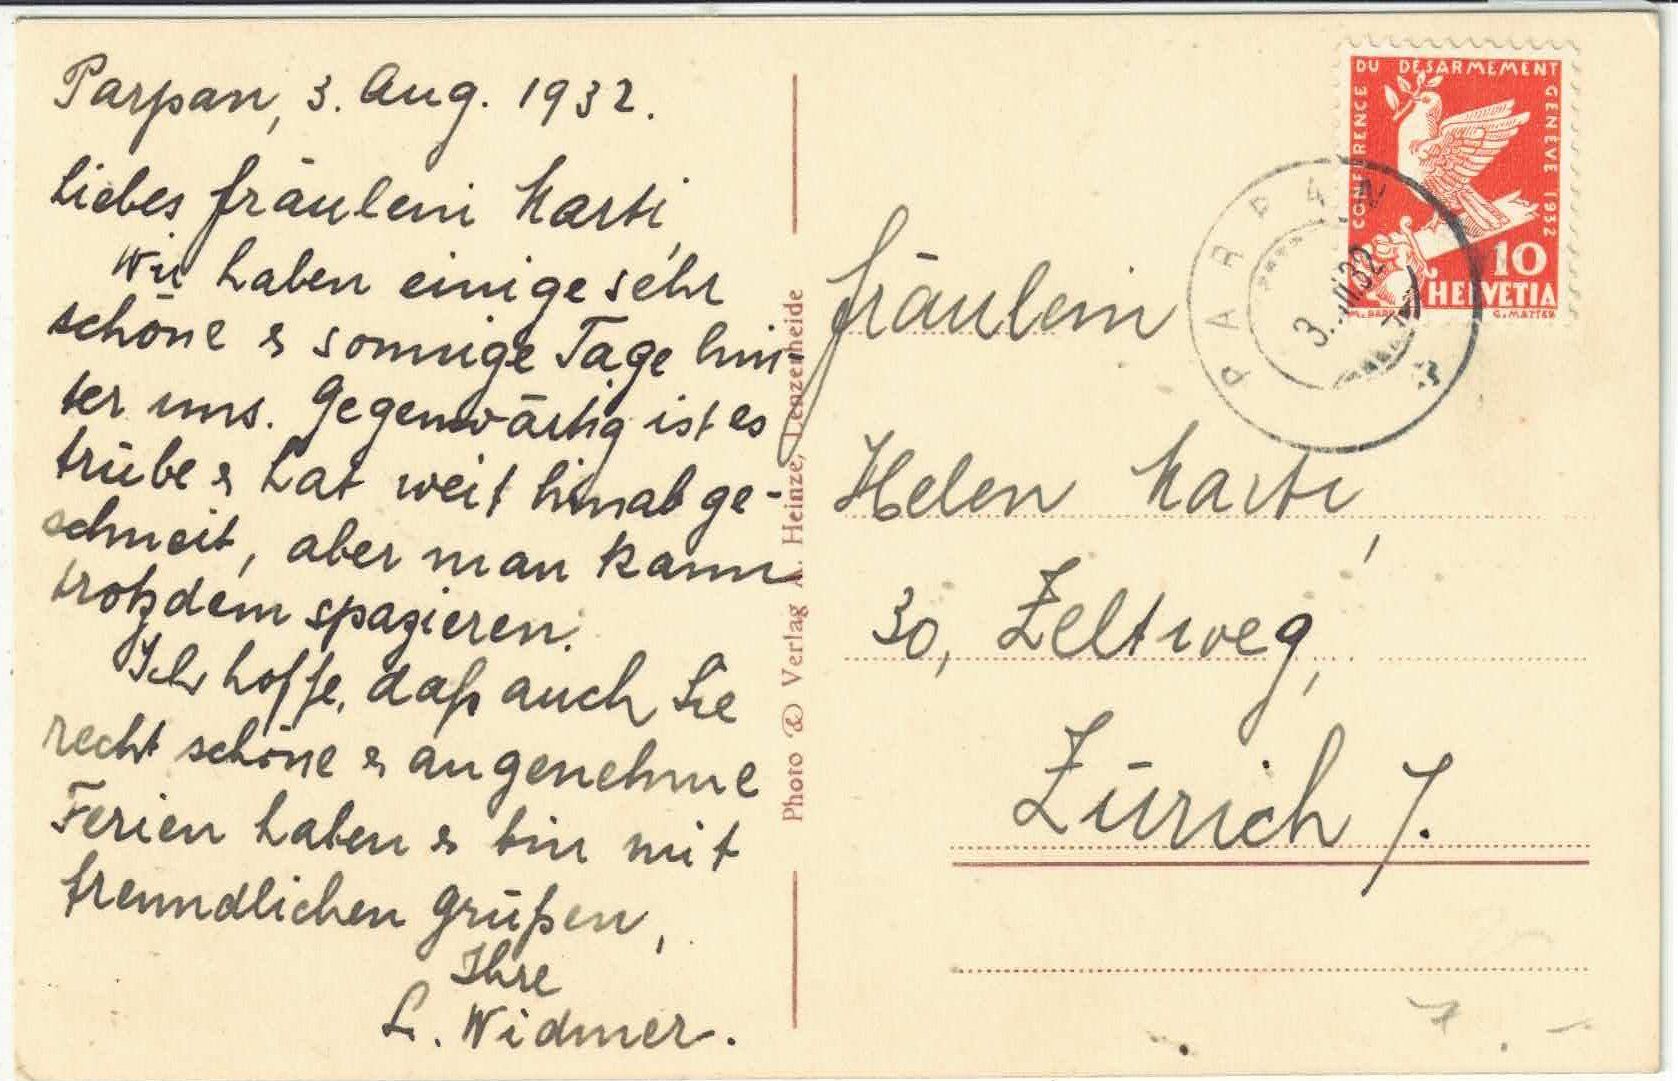 Parpan, 3. Aug. 1932.
Liebes Fräulein Marti,
Wir haben einige sehr
schöne & sonnige Tage hin
ter uns. Gegenwärtig ist es
trübe & hat weit hinab ge-
schneit, aber man kann
trotzdem spazieren.
Ich hoffe, daß auch Sie
recht schöne & angenehme
Ferien haben & bin mit
freundlichen Grüßen,
Ihre
L. Widmer.
Photo & Verlag A. Heinze, Lenzerheide
CONFERENCE DU DESARMEMENT GENEVE 1932
10
HELVETIA
G. MATTER
PARPAN
Fräulein
Helen Marti,
30, Zeltweg,
Zürich 7.